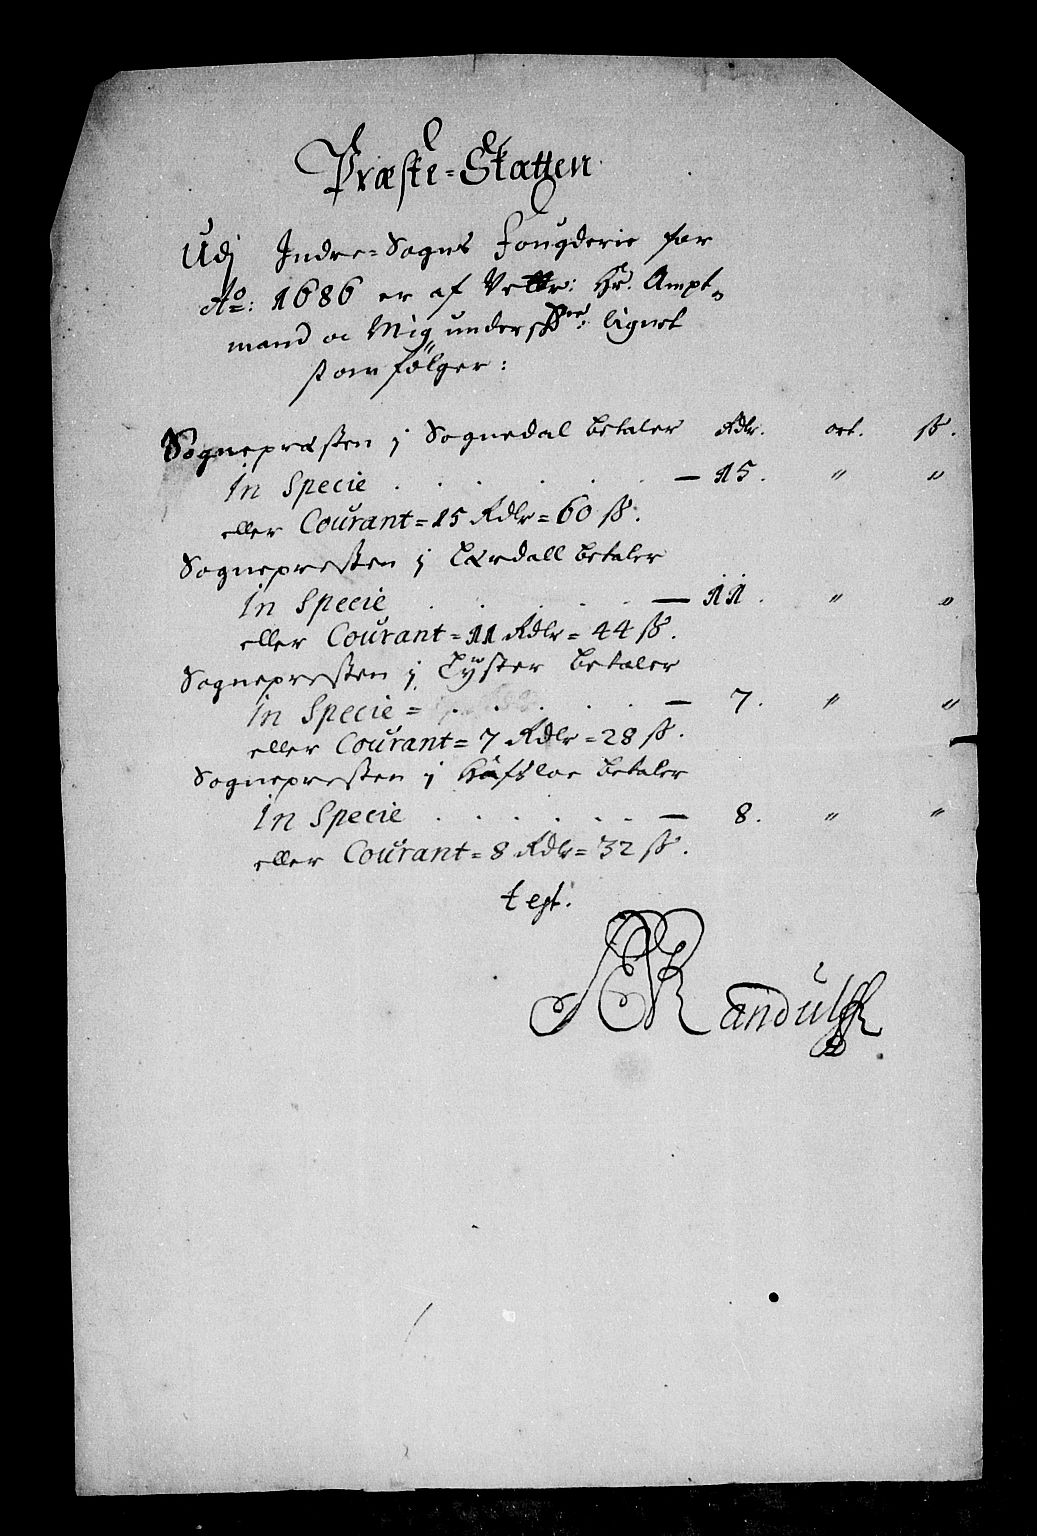 Præste-Skatten
Udj Indre-Sogns Fougderie for
Ao: 1686 er af Vettr: Hr. Ampt-
mand oc Mig underskr: lignet
som følger:
Sognepresten j Sognedal betaler Rdlr. ort. ß.
In Specie . . . . . . — 15. " "
eller Courant = 15 Rdlr = 60 ß.
Sognepresten j Lærdall betaler
In Specie . . . . . — 11. " "
eller Courant = 11 Rdlr = 44 ß.
Sognepresten j Lyster betaler
In Specie = . . . . . — 7. " "
eller Courant = 7 Rdlr = 28 ß.
Sognepresten j Hafsloe betaler
In Specie . . . . . . . — 8. " "
eller Courant = 8 Rdlr = 32 ß.
test.
Randulff